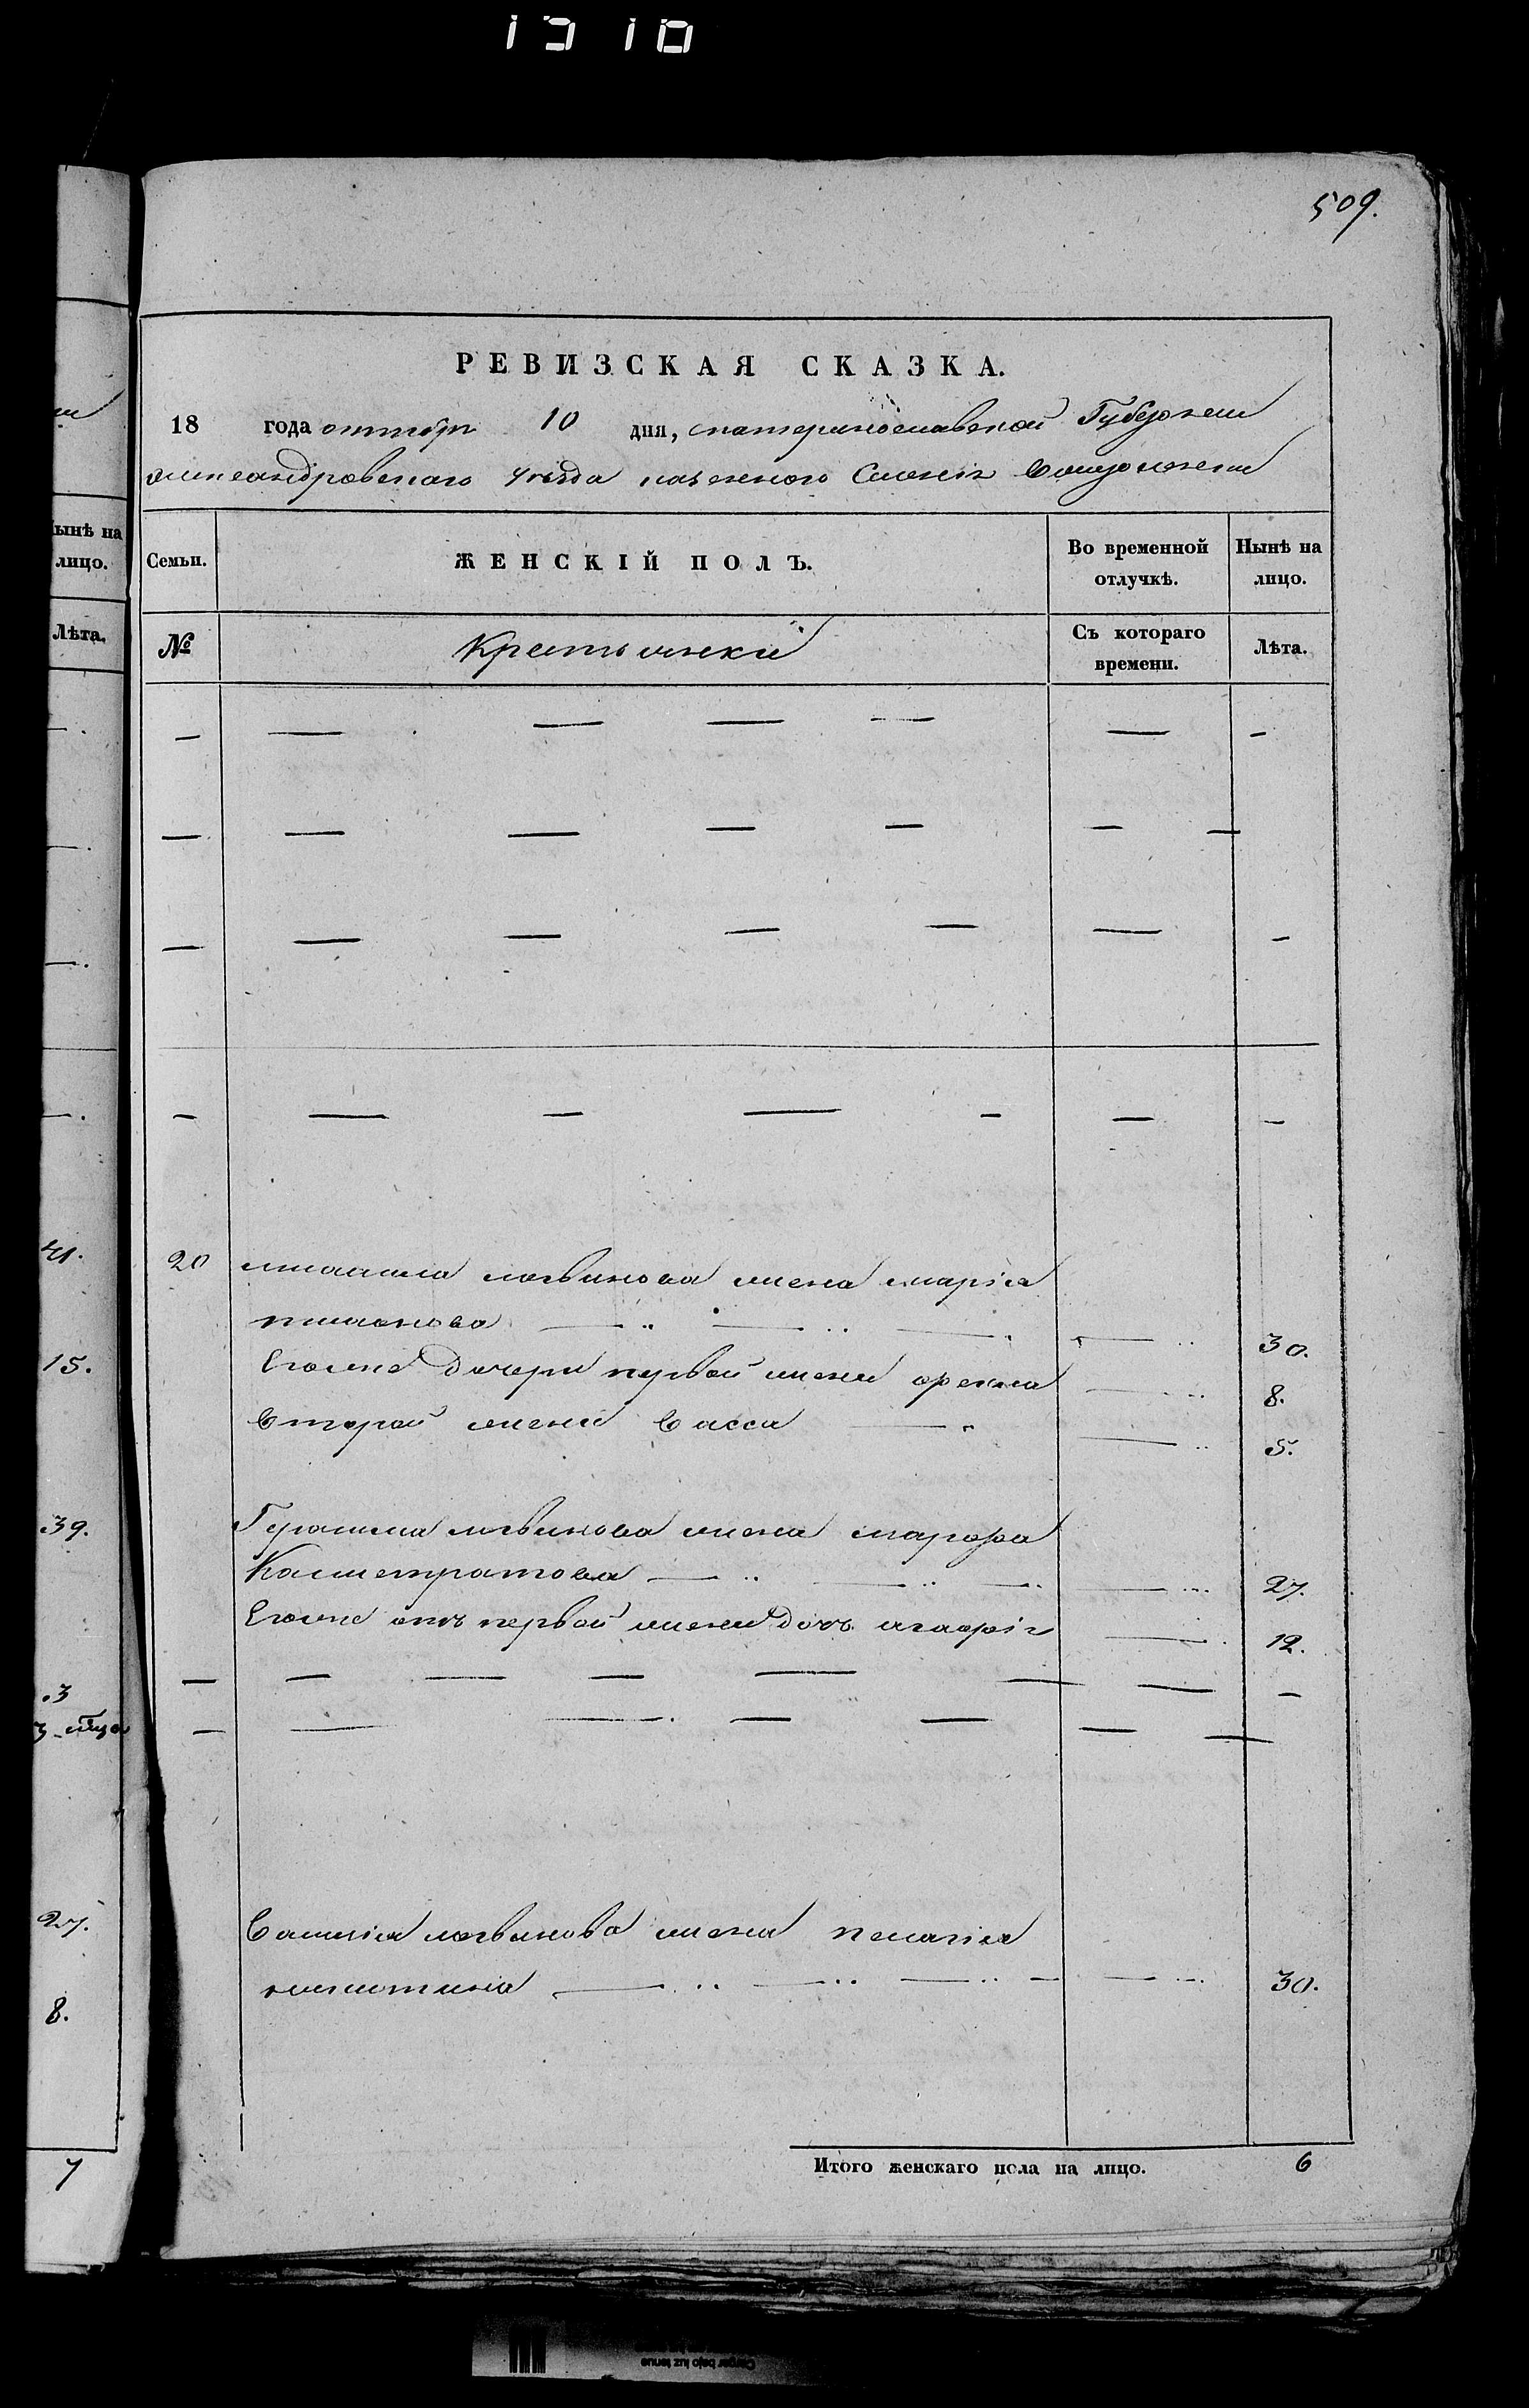 509.
РЕВИЗСКАЯ СКАЗКА.
18 года октября 10 дня, екатеринославской Губернии
александровского уезда казенного
Семьи. ЖЕНСКІЙ ПОЛЪ. Во временной отлучкѣ. Нынѣ на лицо.
№ Крестьянки Съ котораго времени. Лѣта.
— — — — — — —
— — — — — — —
— — — — — — —
— — — — — — —
20 логвинова жена марія
— — — — 30.
Егоже дочери первой жени фекла — 8.
Второй жени Васса — — 5.
Герасима логвинова жена марфа
Калистратова — — — — 27.
Егоже отъ первой жени дочь агафія — 12.
— — — — — — — —
— — — — — — —
Василія логвинова жена пелагія
никитина — — — — — 30.
Итого женскаго пола на лицо. 6
Нынѣ на
лицо.
Лѣта.
41.
15.
39.
.3
27.
8.
7